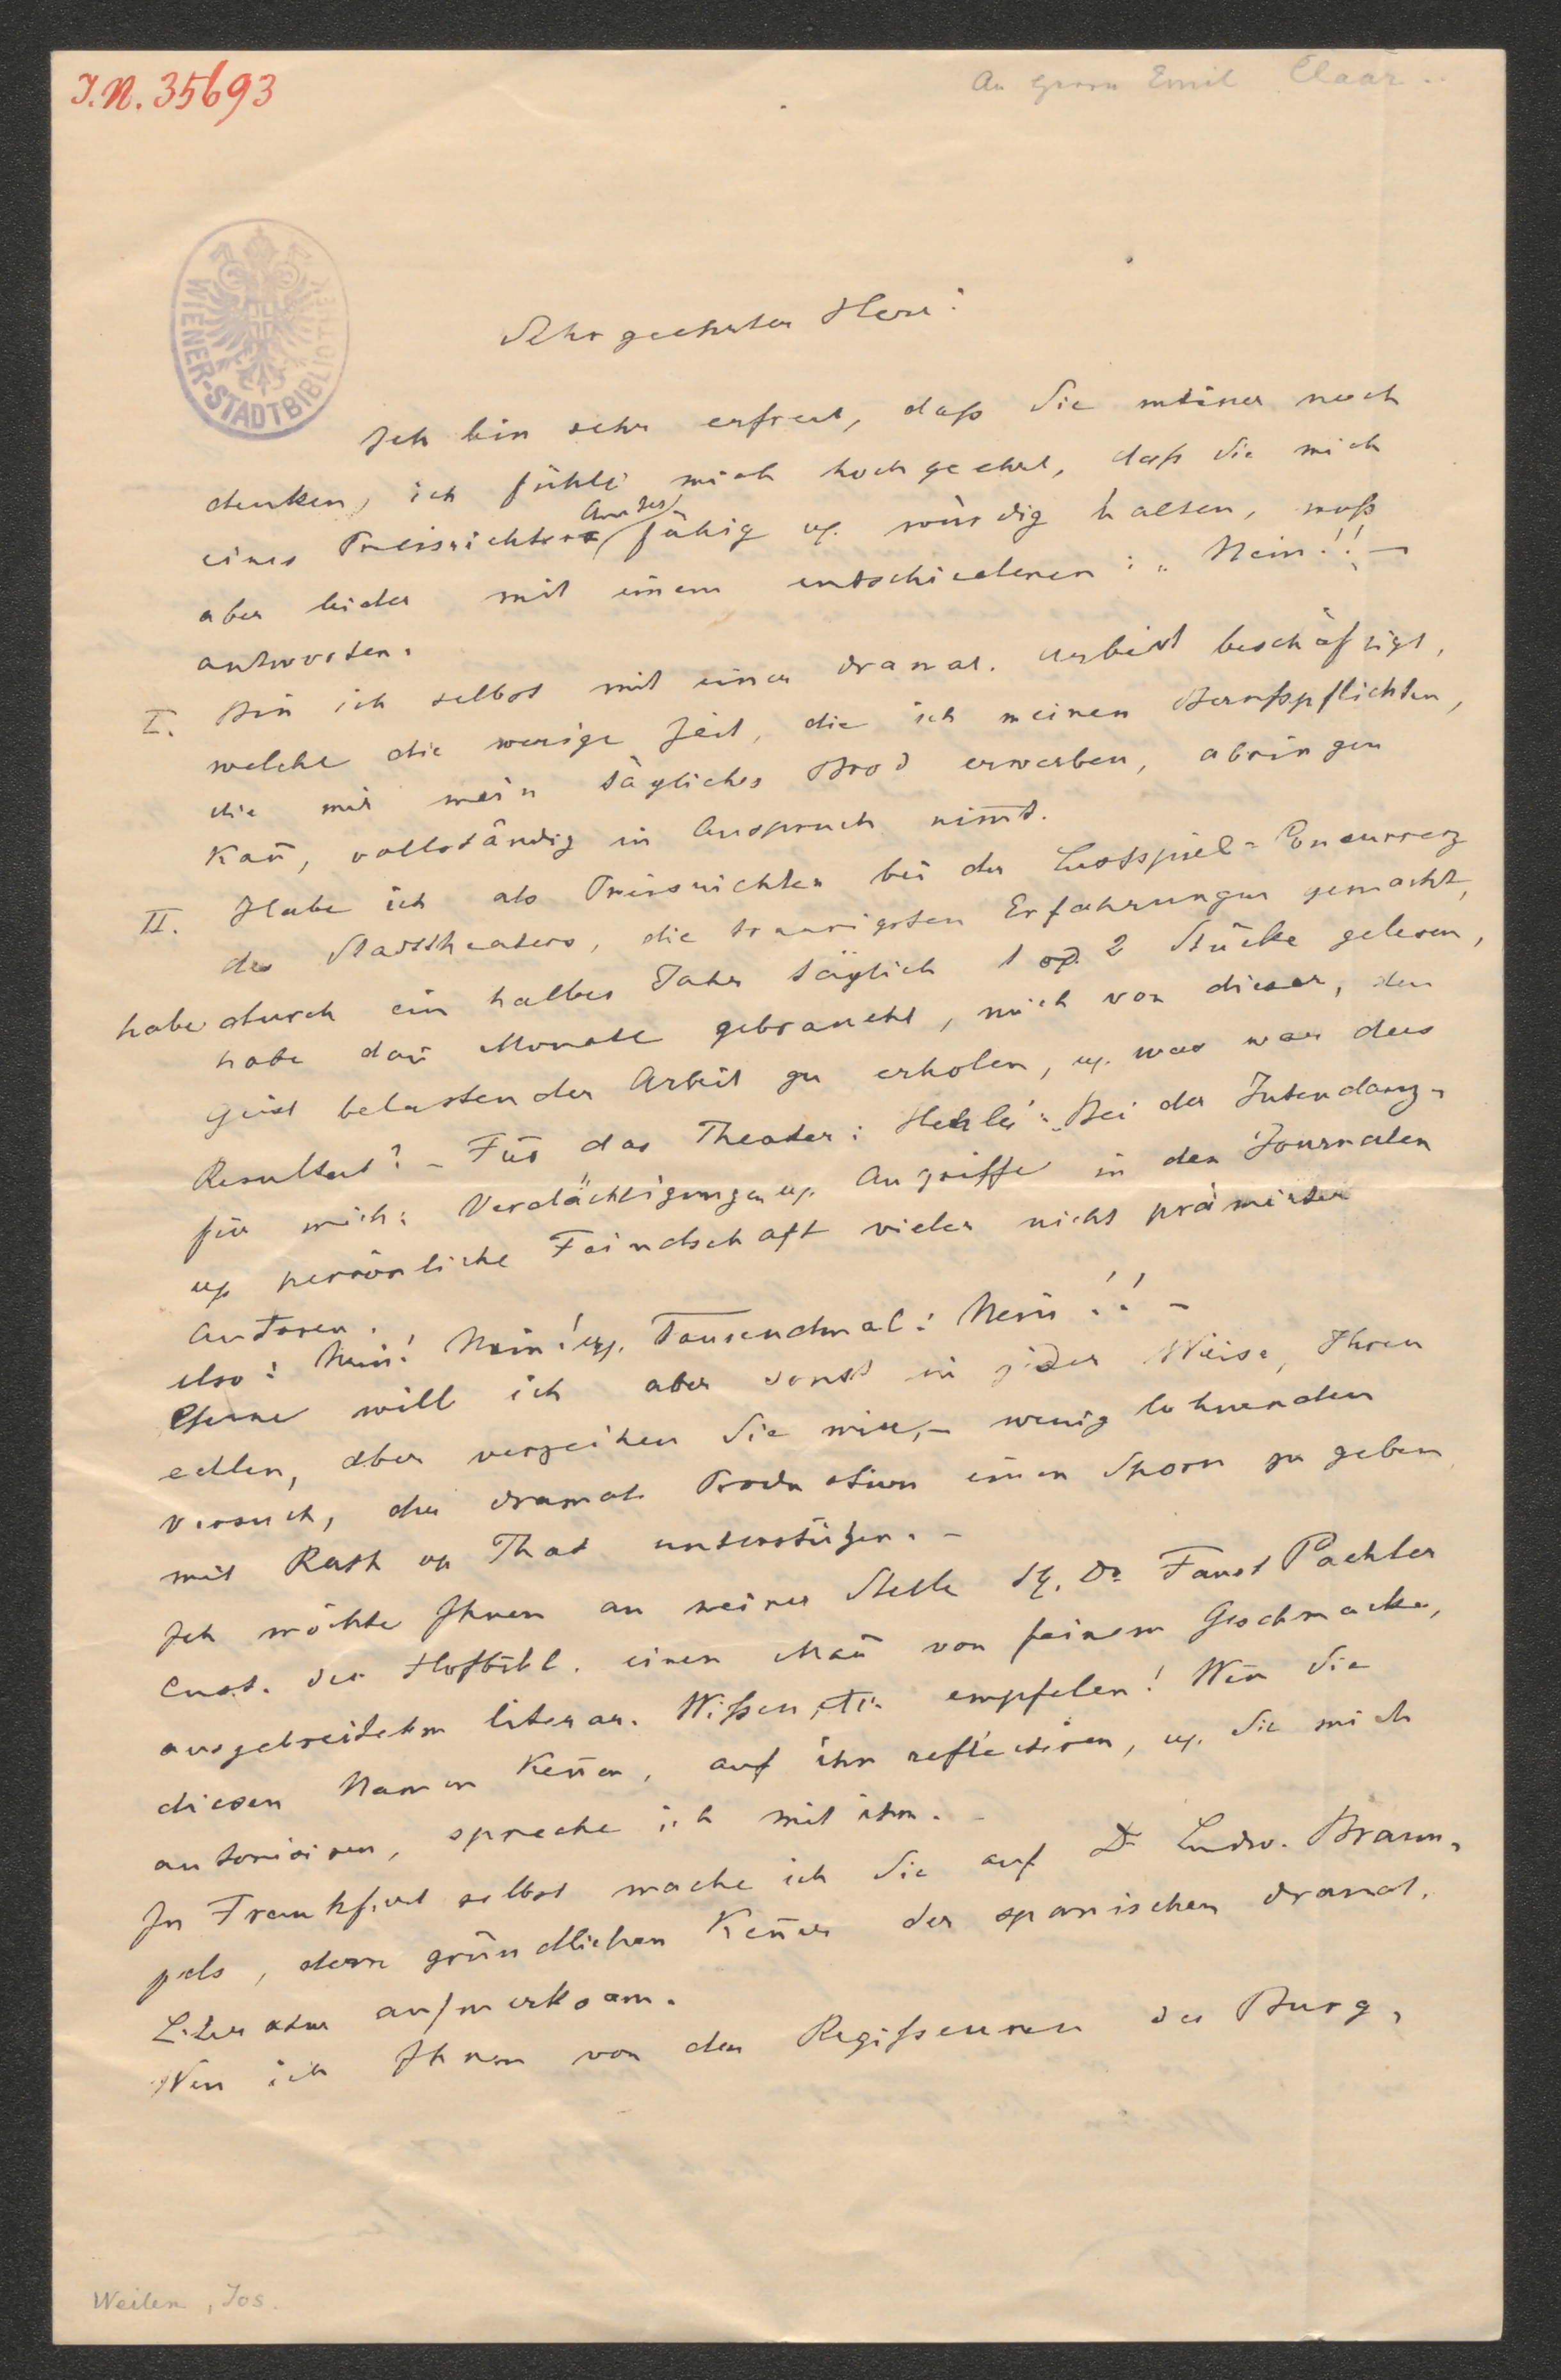 J.N. 35693
An Herrn Emil Claar..
WIENER-STADTBIBLIOTHEK
Sehr geehrter Herr!
Ich bin sehr erfreut, daß Sie meiner noch
denken, ich fühle mich hoch geehrt, daß Sie mich
Amtes
eines Preisrichters fähig u. würdig halten, muß
aber leider mit einem entschiedenen: „Nein!!" –
antworten.
I. Bin ich selbst mit einer dramat. Arbeit beschäftigt,
welche die wenige Zeit, die ich meinen Berufspflichten,
die mir mein tägliches Brod erwerben, abringen
kan̄, vollständig in Anspruch nim̄t.
II. Habe ich als Preisrichter bei der Lustspiel-Concurrenz
des Stadttheaters, die traurigsten Erfahrungen gemacht,
habe durch ein halbes Jahr täglich 1 od. 2 Stücke gelesen,
habe dan̄ Monate gebraucht, mich von dieser, den
Geist belastenden Arbeit zu erholen, u. was war das
Resultat? – Für das Theater: Henle's „Bei der Intendanz"
für mich: Verdächtigungen u. Angriffe in den Journalen
u. persönliche Feindschaft vieler nicht prämirter
Autoren.
Also: Nein! Nein! u. Tausendmal: Nein!! –
Gerne will ich aber sonst in jeder Weise, Ihren
edlen, aber verzeihen Sie mir, – wenig lohnenden
Versuch, der dramat. Production einen Sporn zu geben
mit Rath u. That unterstützen. –
Ich möchte Ihnen an meiner Stelle H. Dr. Faust Pachler
Cust. der Hofbibl. einen Man̄ von feinem Geschmacke,
ausgebreitetem literar. Wißen, etc. empfelen! Wen̄ Sie
diesen Namen ken̄en, auf ihn reflectiren, u. Sie mich
autorisiren, spreche ich mit ihm. –
In Frankfurt selbst mache ich Sie auf Dr Ludw. Braun-
fels, dem gründlichen Ken̄er der spanischen dramat.
Literatur aufmerksam.
Wen̄ ich Ihnen von den Regißeuren des Burg-
Weilen, Jos.